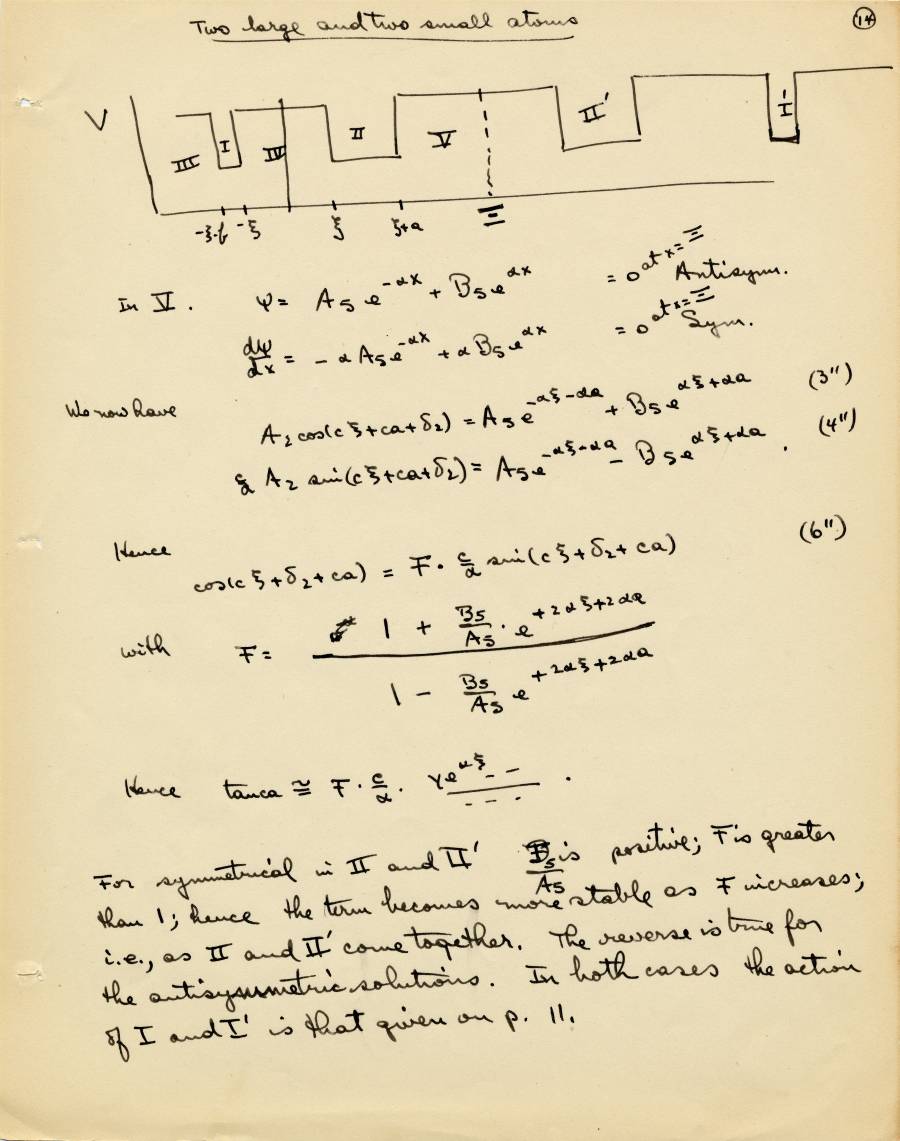 Two large and two small atoms
14
V
III I IV II V II' I'
-ξ-b -ξ ξ ξ+a Ξ
In V. ψ = A₅e^{-αx} + B₅e^{αx} = 0 at x=Ξ Antisym.
dψ/dx = -αA₅e^{-αx} + αB₅e^{αx} = 0 at x=Ξ Sym.
We now have
A₂cos(cξ+ca+δ₂) = A₅e^{-αξ-αa} + B₅e^{αξ+αa} (3")
c/α A₂ sin(cξ+ca+δ₂) = A₅e^{-αξ-αa} - B₅e^{αξ+αa}. (4")
Hence
cos(cξ+δ₂+ca) = F · c/α sin(cξ+δ₂+ca) (6")
with F = 1 + B₅/A₅ · e^{+2αξ+2αa}
1 - B₅/A₅ e^{+2αξ+2αa}
Hence tan ca ≅ F · c/α · γe^{αξ} - - / - - - .
For symmetrical in II and II' B₅/A₅ is positive; F is greater
than 1; hence the term becomes more stable as F increases;
i.e., as II and II' come together. The reverse is true for
the antisymmetric solutions. In both cases the action
of I and I' is that given on p. 11.